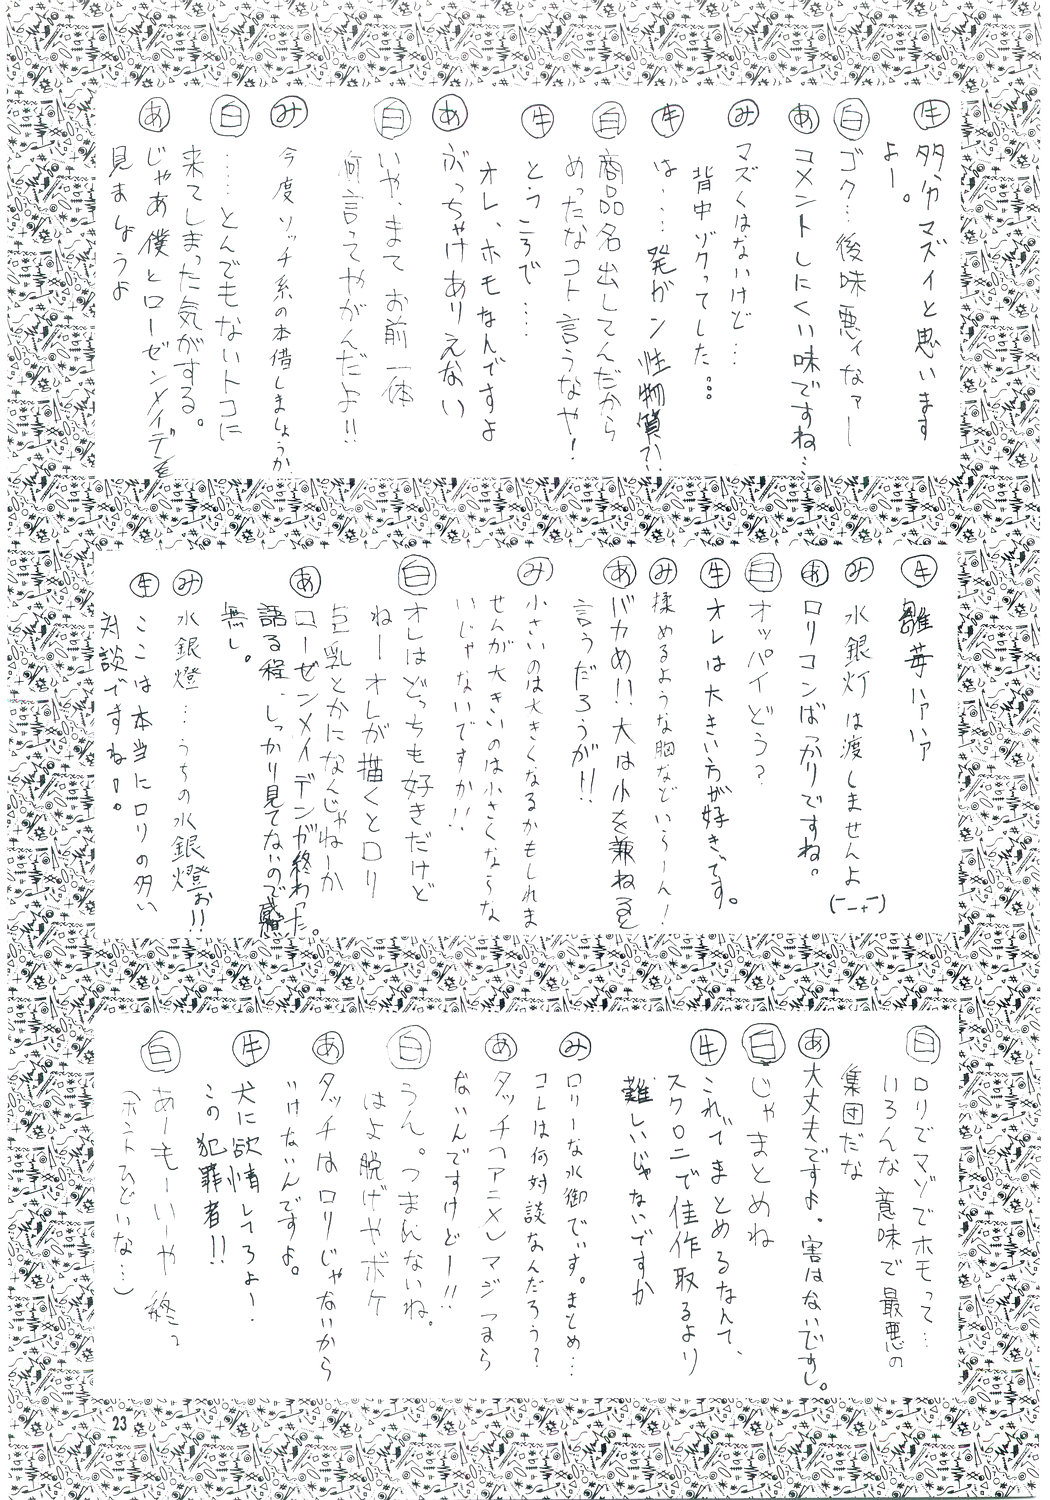 牛 多分マズイと思います
よー。
白 ゴク…後味悪ィなァー
あ コメントしにくい味ですね…
み マズくはないけど…
背中ゾクってした…
牛 は…発ガン性物質?!
白 商品名出してんだから
めったなコト言うなや!
牛 とうころで…
オレ、ホモなんですよ
あ ぶっちゃけありえない
白 いや、まて お前一体
何言ってやがんだよ!!
み 今度ソッチ系の本借しましょうか
白 …とんでもないトコに
来てしまった気がする。
あ じゃあ僕とローゼンメイデンを
見ましょうよ
牛 雛苺ハァハァ
み 水銀灯は渡しませんよ
(ー_+ー)
あ ロリコンばっかりですね。
白 オッパイどう?
牛 オレは大きい方が好きです。
み 揉めるような胸などいらーん!
あ バカめ!!大は小を兼ねると
言うだろうが!!
み 小さいのは大きくなるかもしれま
せんが大きいのは小さくならな
いじゃないですか!!
白 オレはどっちも好きだけど
ねー オレが描くとロリ
巨乳とかになんじゃねーか
あ ローゼンメイデンが終わった。
語る程、しっかり見てないので感想
無し。
み 水銀燈…うちの水銀燈ぉ!!
牛 ここは本当にロリの多い
対談ですねー。
白 ロリでマゾでホモって…
いろんな意味で最悪の
集団だな
あ 大丈夫ですよ。害はないですし。
白 じゃまとめね
牛 これでまとめるなんて、
スクロニで佳作取るより
難しいじゃないですか
み ロリーな水御でぃす。まとめ…
コレは何対談なんだろう?
あ タッチ(アニメ)マジつまら
ないんですけどー!!
白 うん。つまんないね。
はよ脱げやボケ
あ タッチはロリじゃないから
いけないんですよ。
牛 犬に欲情してろよー
この犯罪者!!
白 あーもーいーや 終っ
(ホントひどいな…)
23